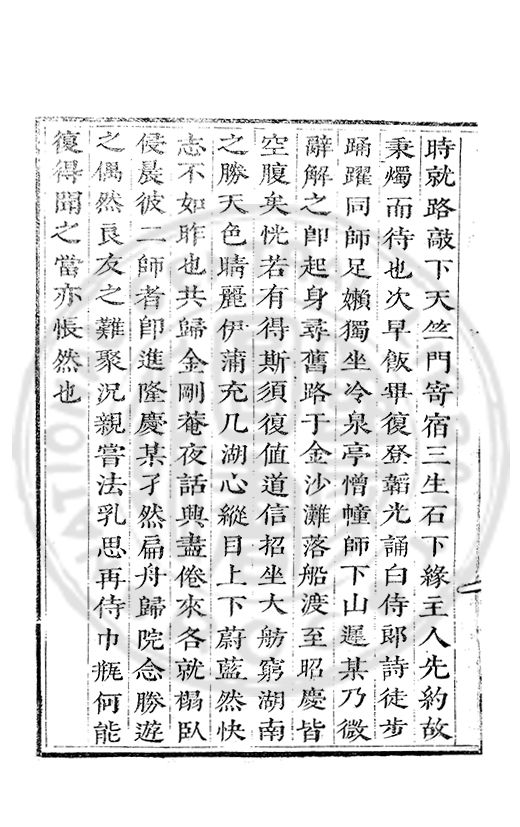 時就路敲下天竺門寄宿三生石下緣主人先約故
秉燭而待也次早飯畢復登韜光誦白侍郎詩徒步
踊躍同師足嬾獨坐冷泉亭憎幢師下山遲某乃微
辭解之卽起身尋舊路于金沙灘落船渡至昭慶皆
空腹矣恍若有得斯須復値道信招坐大舫窮湖南
之勝天色晴麗伊蒲充几湖心縱目上下蔚藍然快
志不如昨也共歸金剛菴夜話興盡倦來各就榻臥
侵晨彼二師者卽進隆慶某孑然扁舟歸院念勝遊
之偶然良友之難聚況親嘗法乳思再侍巾瓶何能
復得聞之當亦悵然也